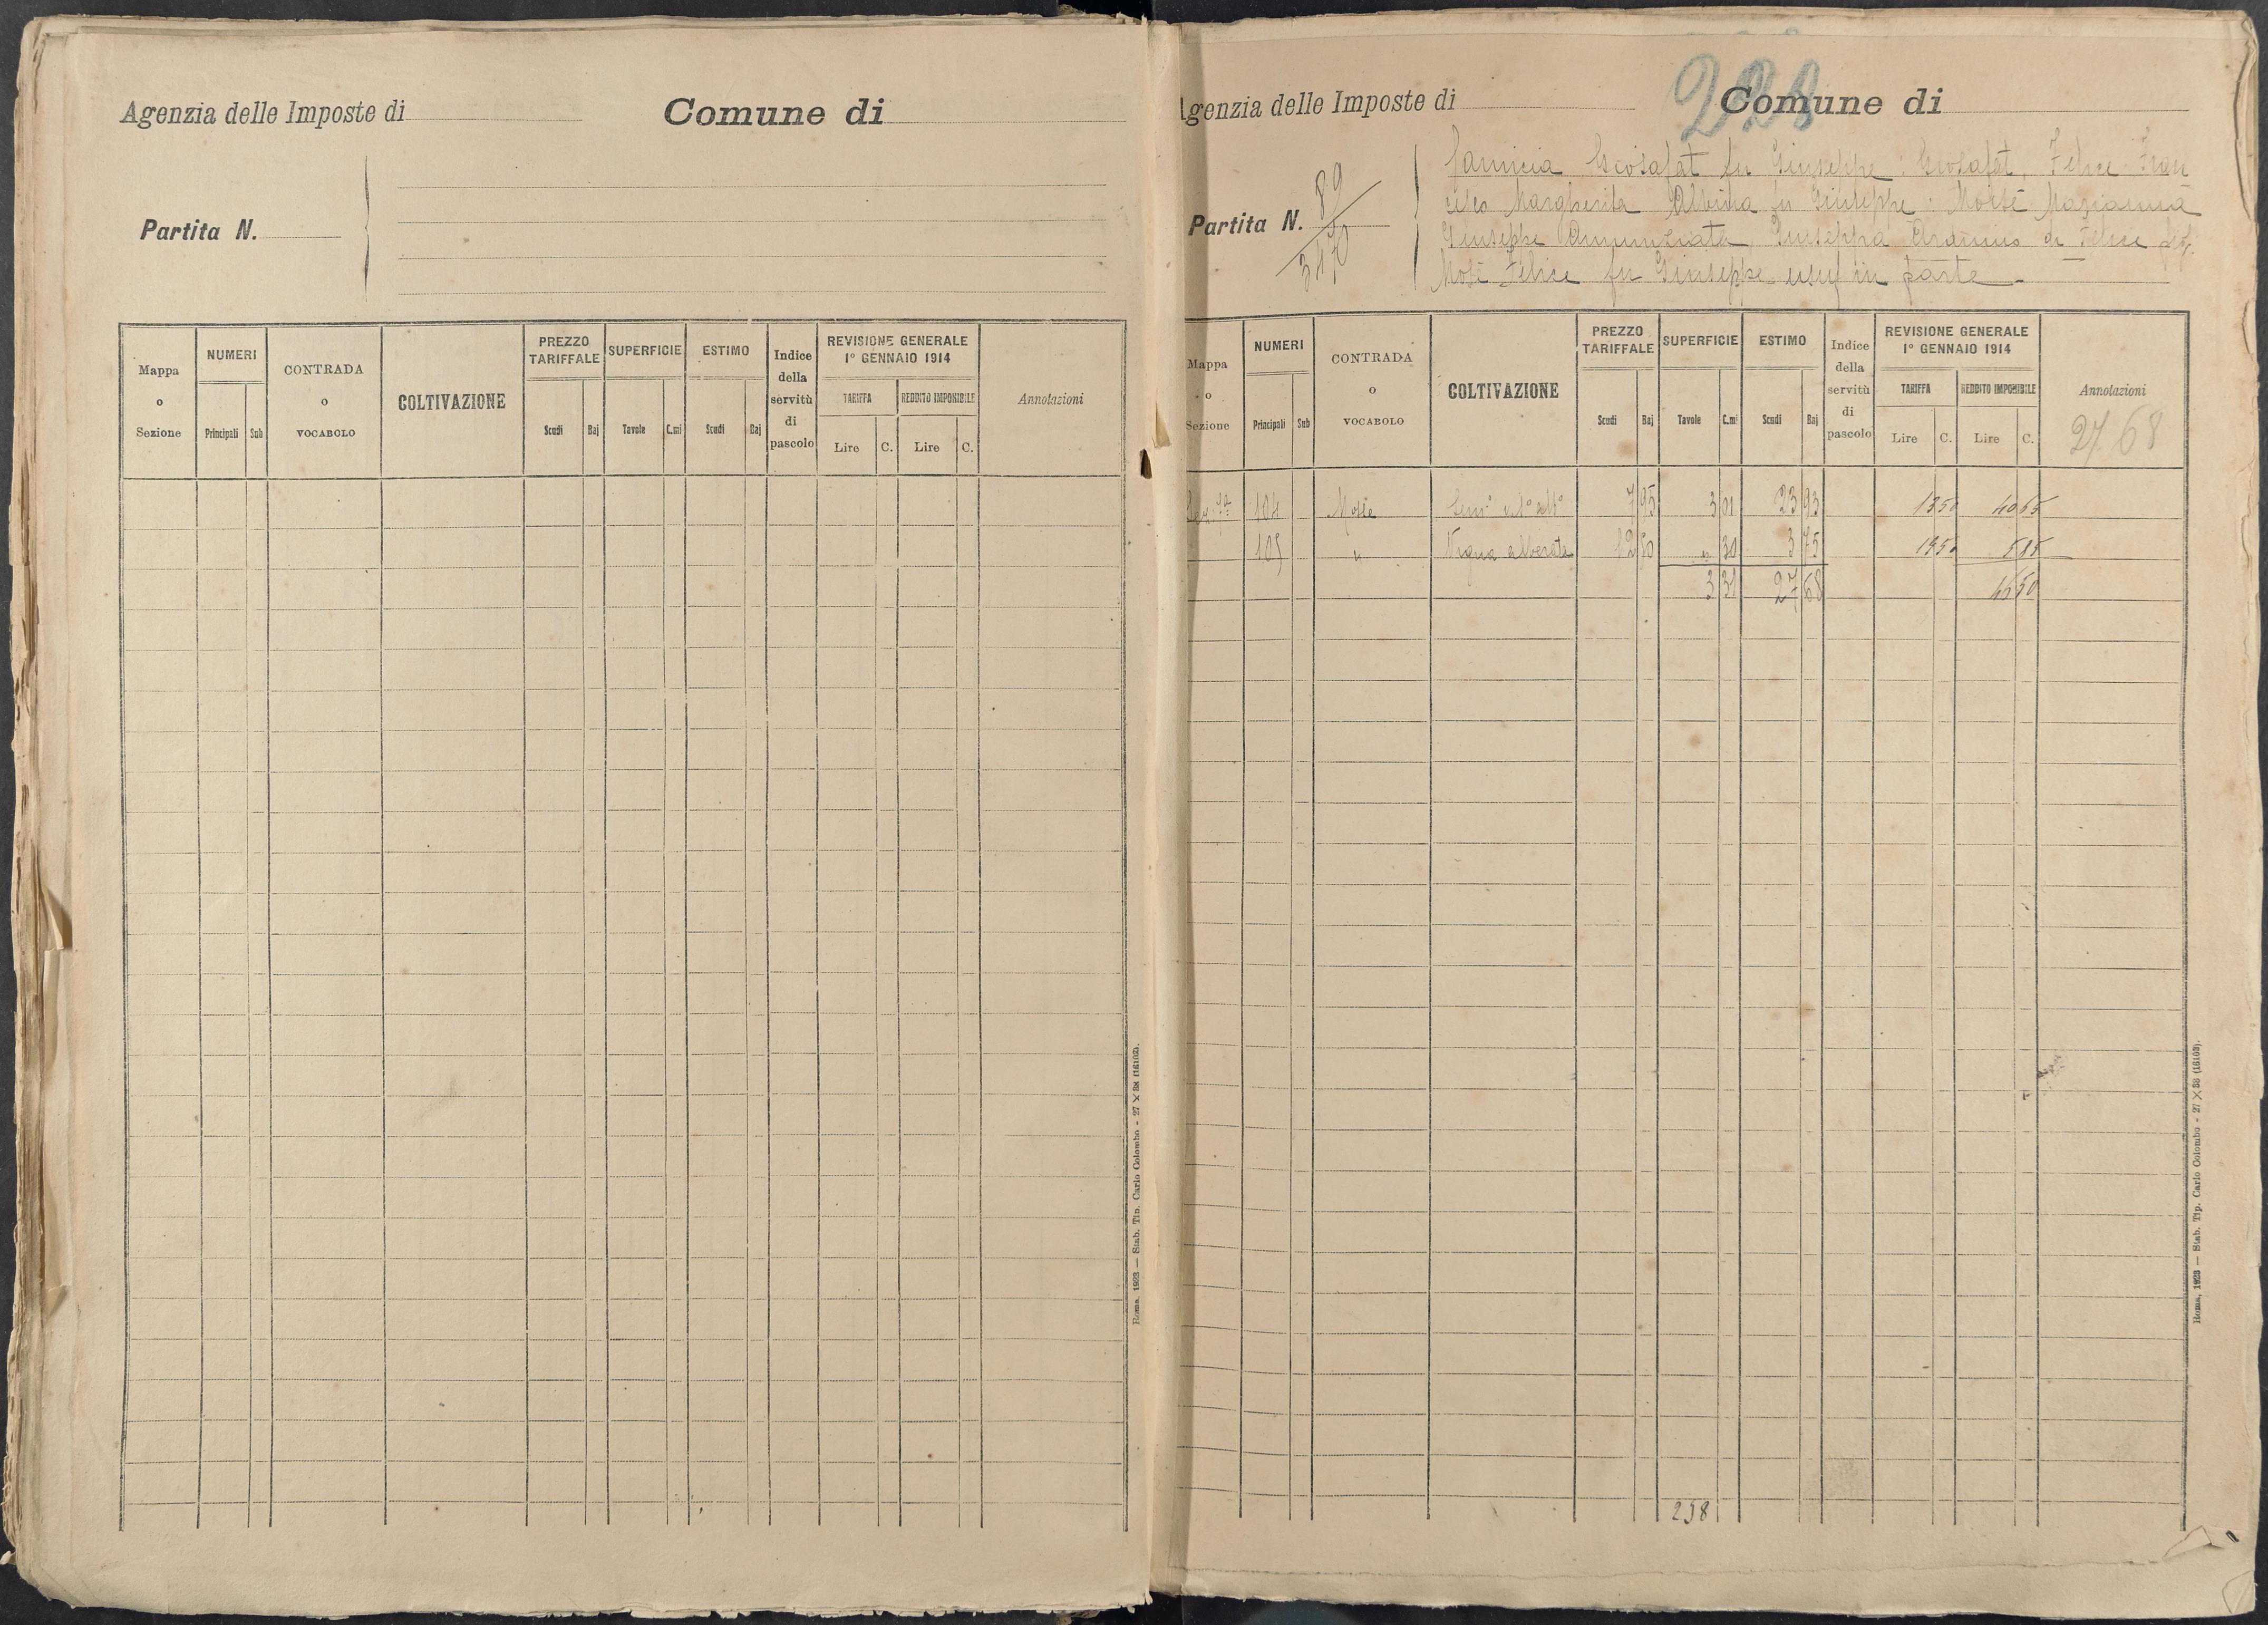 Agenzia delle Imposte di
Comune di
Partita N.
Mappa o Sezione
NUMERI
Principali
Sub
CONTRADA o VOCABOLO
COLTIVAZIONE
PREZZO TARIFFALE
Scudi
Baj
SUPERFICIE
Tavole
C.mi
ESTIMO
Scudi
Baj
Indice della servitù di pascolo
REVISIONE GENERALE
1º GENNAIO 1914
TARIFFA
REDDITO IMPONIBILE
Lire
C.
Lire
C.
Annotazioni
Roma, 1923 — Stab. Tip. Carlo Colombo - 27 × 38 (16103).
Agenzia delle Imposte di
Comune di
Partita N. 89
3470
Giosafat fu Giuseppe, Giosafat, Felice Fran
cesco Margherita Albina fu Giuseppe, Mosè Marianna
Giuseppe Annunziata, Giuseppa Erasmo di Felice
Mosè Felice fu Giuseppe usuf in parte
Mappa o Sezione
NUMERI
Principali
Sub
CONTRADA o VOCABOLO
COLTIVAZIONE
PREZZO TARIFFALE
Scudi
Baj
SUPERFICIE
Tavole
C.mi
ESTIMO
Scudi
Baj
Indice della servitù di pascolo
REVISIONE GENERALE
1º GENNAIO 1914
TARIFFA
REDDITO IMPONIBILE
Lire
C.
Lire
C.
Annotazioni
27 68
104 7 95 3 01 23 93 13 50 40 65
105 " Vigna alberata 12 50 " 30 3 75 19 50 5 85
3 31 27 68 46 50
238
Roma, 1923 — Stab. Tip. Carlo Colombo - 27 × 38 (16103).